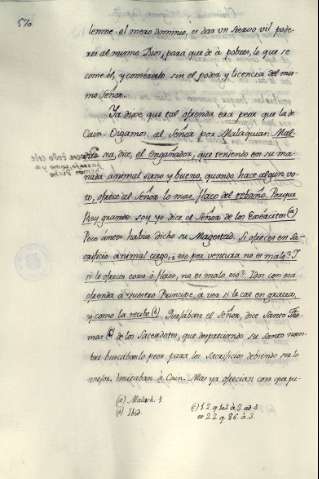 576
lemne el mero dominio, es dar un siervo vil
al mismo Dios, para que dé a pobres, lo que se
come él, y comérselo sin el poder, y licencia del mis-
mo Señor.
Ya dixe que tal ofrenda era peor que la de
Cain. Oygamos al Señor por Malaquias. Mal-
dito sea, dice, el engañador, que teniendo en su ma-
nada animal sano y bueno, quando hace algun vo-
to, ofrece al Señor lo mas flaco del rebaño. Porque
Rey grande soy yo dice el Señor de los Exercitos (a)
Poco antes habia dicho su Magestad. Si ofreceis en Sa-
crificio animal ciego, eso por ventura no es malo? Y
si le ofreceis coxo ò flaco, no es malo eso? Idos con esa
ofrenda à vuestro Principe, à ver si le cae en gracia,
y como la recibe (b). Quejabase el Señor, dice Santo Tho-
mas (c) de los Sacerdotes, que despreciando su santo nom-
bre buscaban lo peor para los Sacrificios debiendo ser lo
mejor. Imitaban à Cain. Mas ya ofrecian con que
(a) Malach. 1.
(b) Ibid.
(c) 1. 2. q. 102 à 2 ad 2.
et 22 q. 86 à 3.